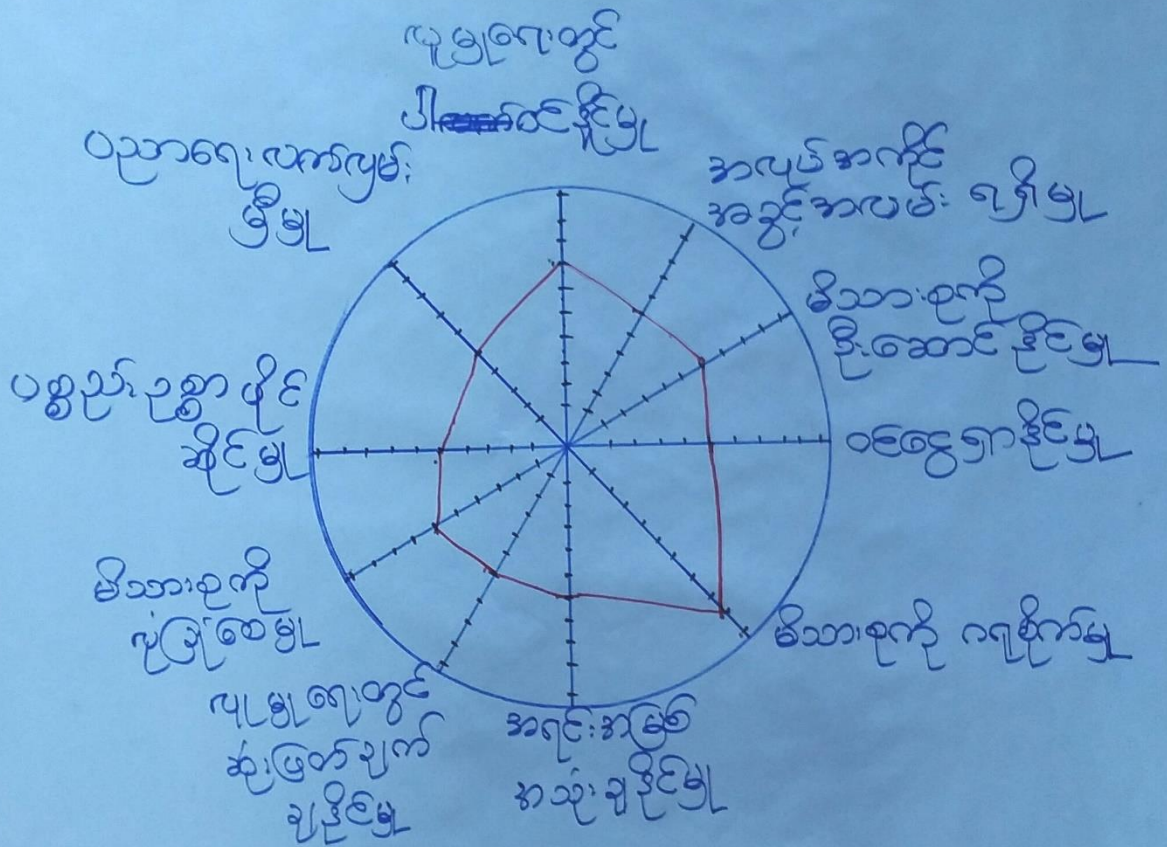 လူမှုရေးတွင်
ပါဝင်နိုင်မှု
အလုပ်အကိုင်
အခွင့်အလမ်း ရရှိမှု
မိသားစုကို
ဦးဆောင်နိုင်မှု
ဝင်ငွေရှာနိုင်မှု
မိသားစုကို ဂရုစိုက်မှု
အရင်းအမြစ်
အသုံးချနိုင်မှု
လူမှုရေးတွင်
ဆုံးဖြတ်ချက်
ချနိုင်မှု
မိသားစုကို
လုံခြုံစေမှု
ပစ္စည်းဥစ္စာ ပိုင်
ဆိုင်မှု
ပညာရေး လက်လှမ်း
မှီမှု